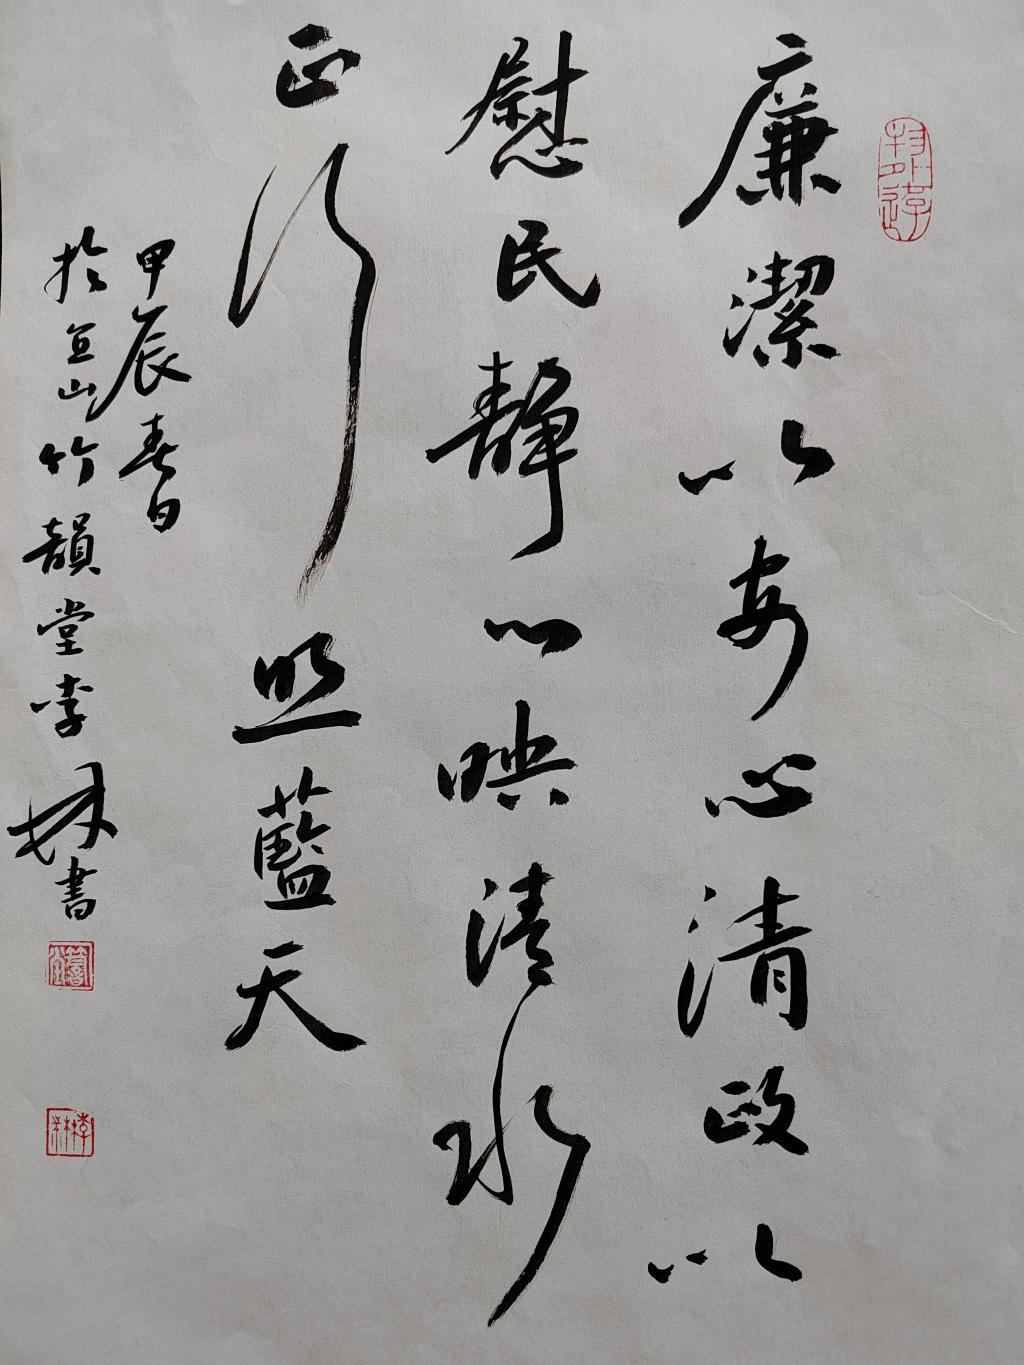 廉潔以安心清政以
慰民靜心映清水
正行照藍天
甲辰春日
於豆山竹韻堂李林書
李林